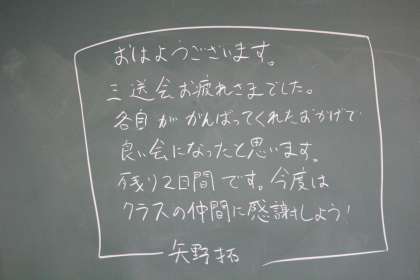 おはようございます。
三送会お疲れさまでした。
各自ががんばってくれたおかげで
良い会になったと思います。
残り2日間です。今度は
クラスの仲間に感謝しよう!
矢野拓